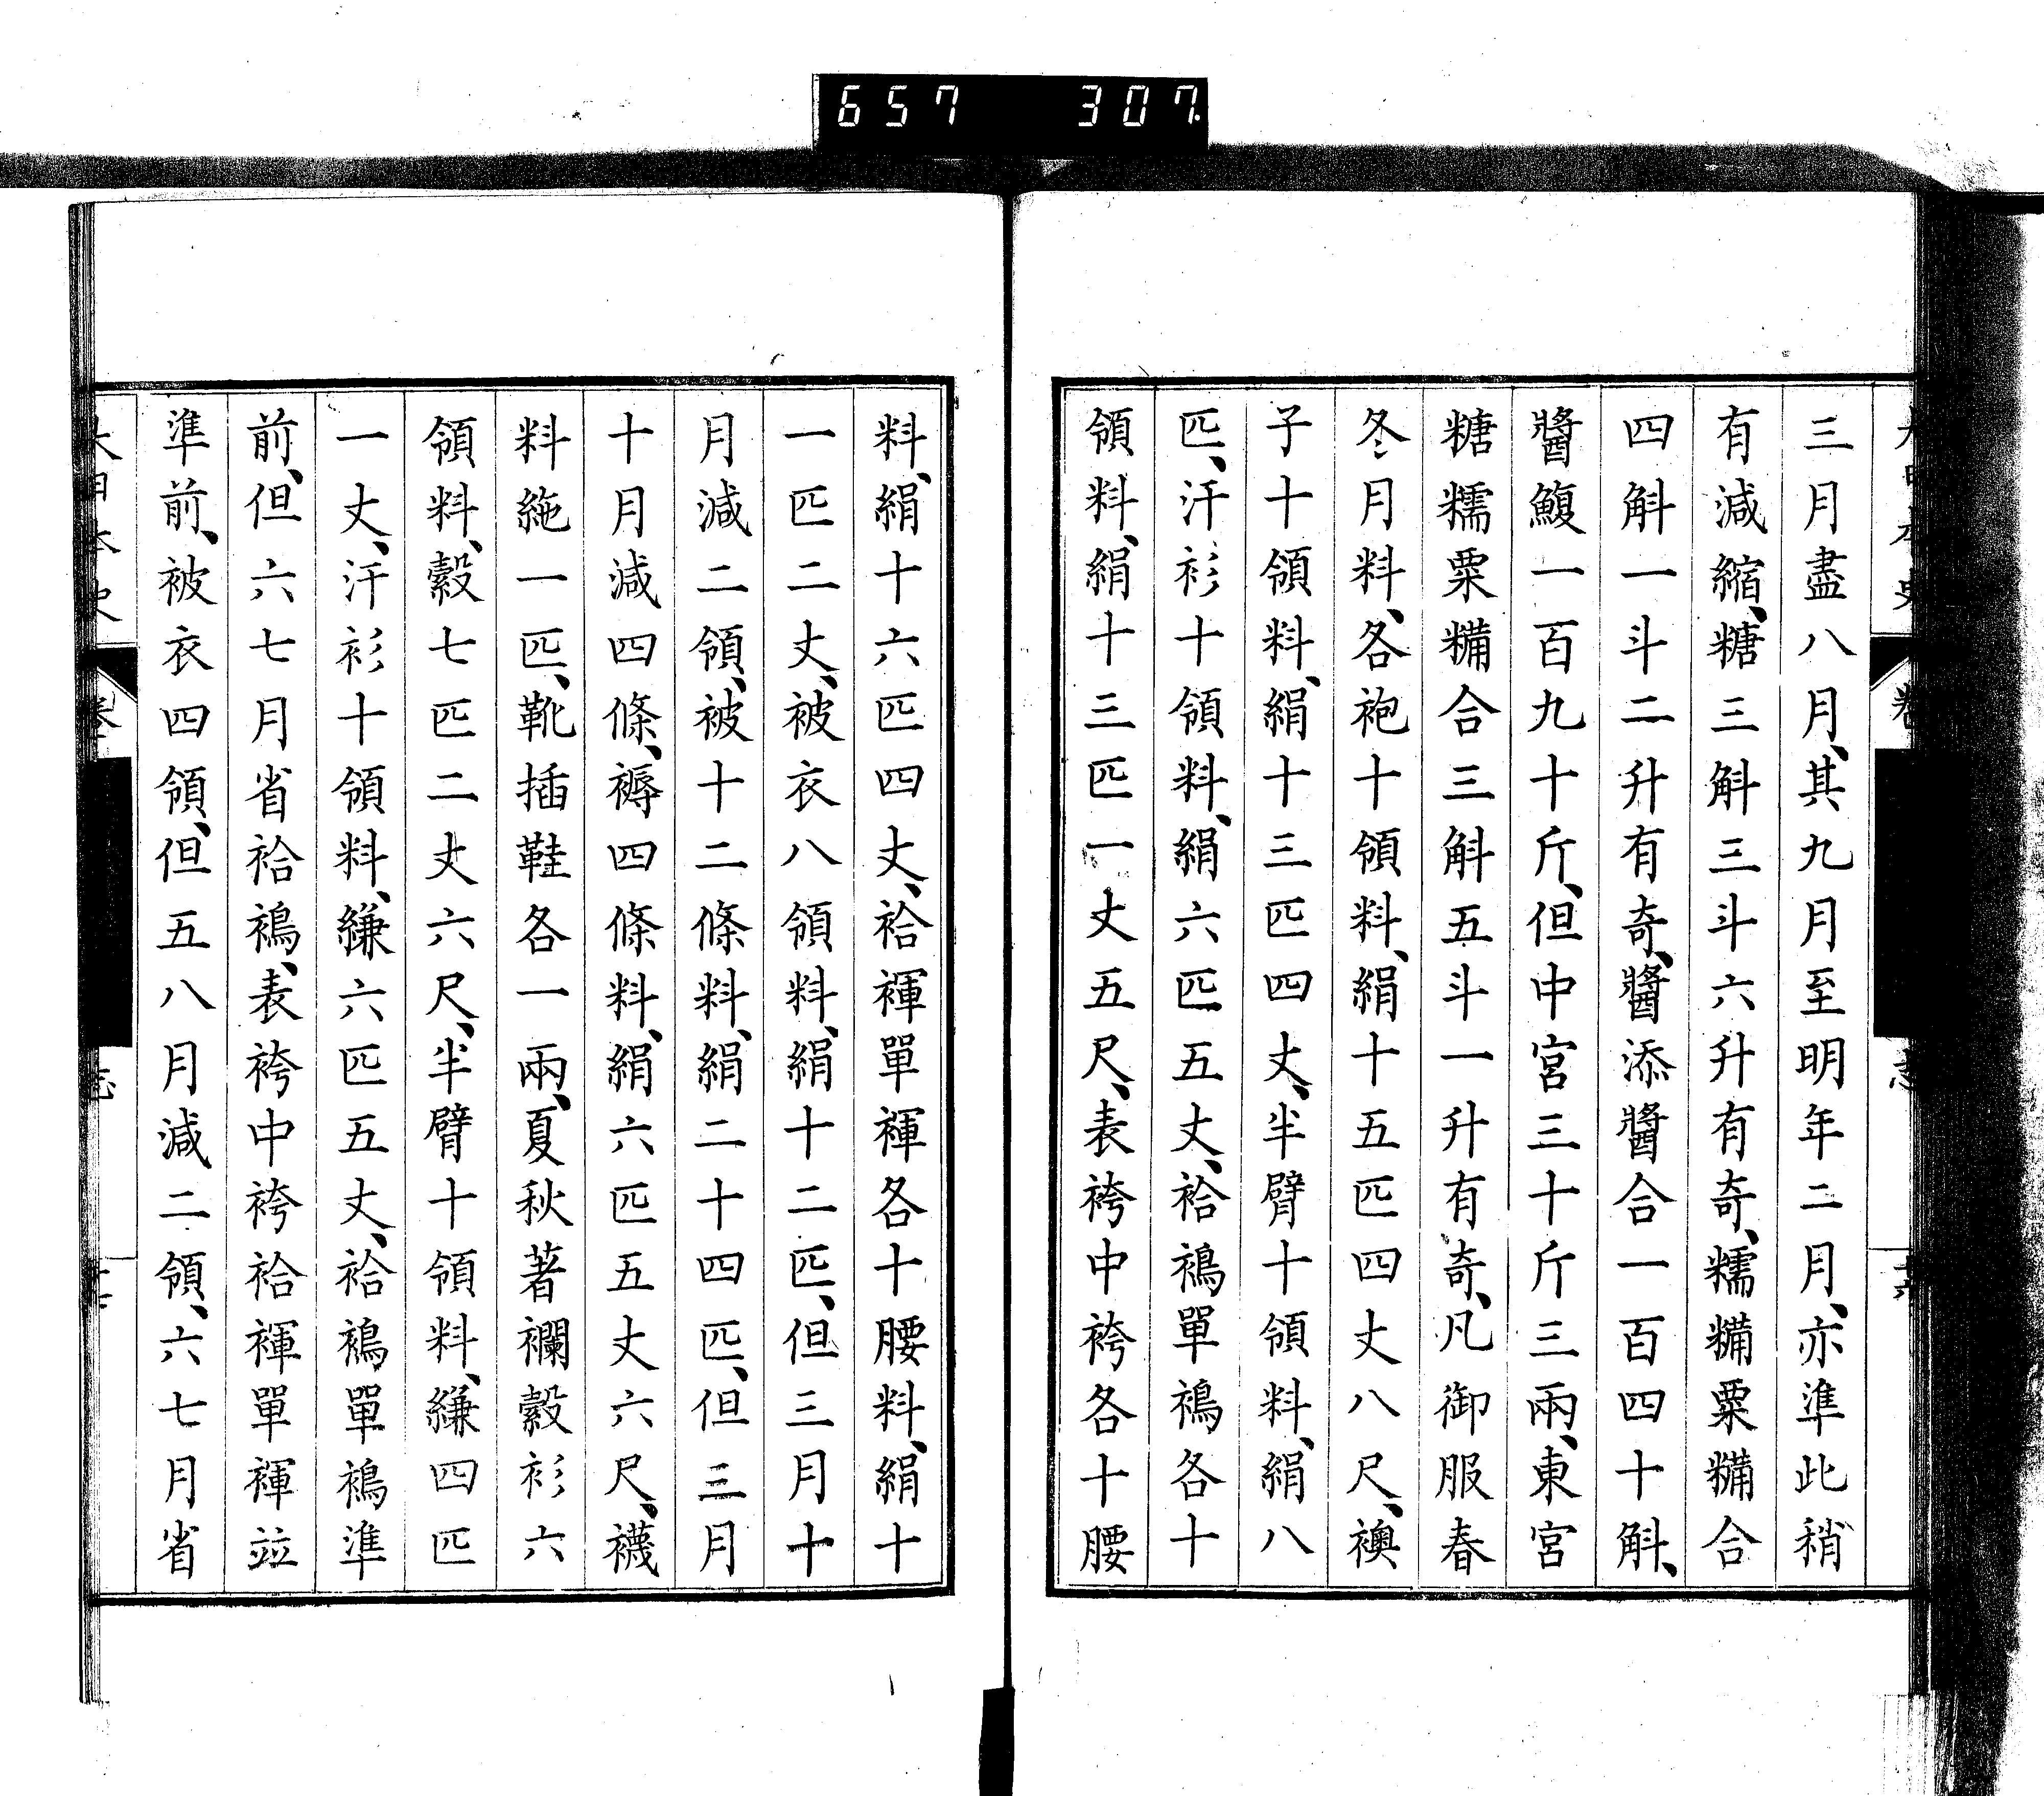 657 307
三月盡八月、其九月至明年二月、亦準此稍
有減縮、糖三斛三斗六升有奇、糯糒粟糒合
四斛一斗二升有奇、醬添醬合一百四十斛、
醬鰒一百九十斤、但中宮三十斤三兩、東宮
糖糯粟糒合三斛五斗一升有奇、凡御服春
冬月料、各袍十領料、絹十五匹四丈八尺、襖
子十領料、絹十三匹四丈、半臂十領料、絹八
匹、汗衫十領料、絹六匹五丈、袷襔單襔各十
領料、絹十三匹一丈五尺、表袴中袴各十腰
料、絹十六匹四丈、袷褌單褌各十腰料、絹十
一匹二丈、被衣八領料、絹十二匹、但三月十
月減二領、被十二條料、絹二十四匹、但三月
十月減四條、褥四條料、絹六匹五丈六尺、襪
料絁一匹、靴插鞋各一兩、夏秋著襴縠衫六
領料、縠七匹二丈六尺、半臂十領料、縑四匹
一丈、汗衫十領料、縑六匹五丈、袷襔單襔準
前、但六七月省袷襔、表袴中袴袷褌單褌竝
準前、被衣四領、但五八月減二領、六七月省
大日本史
卷
志